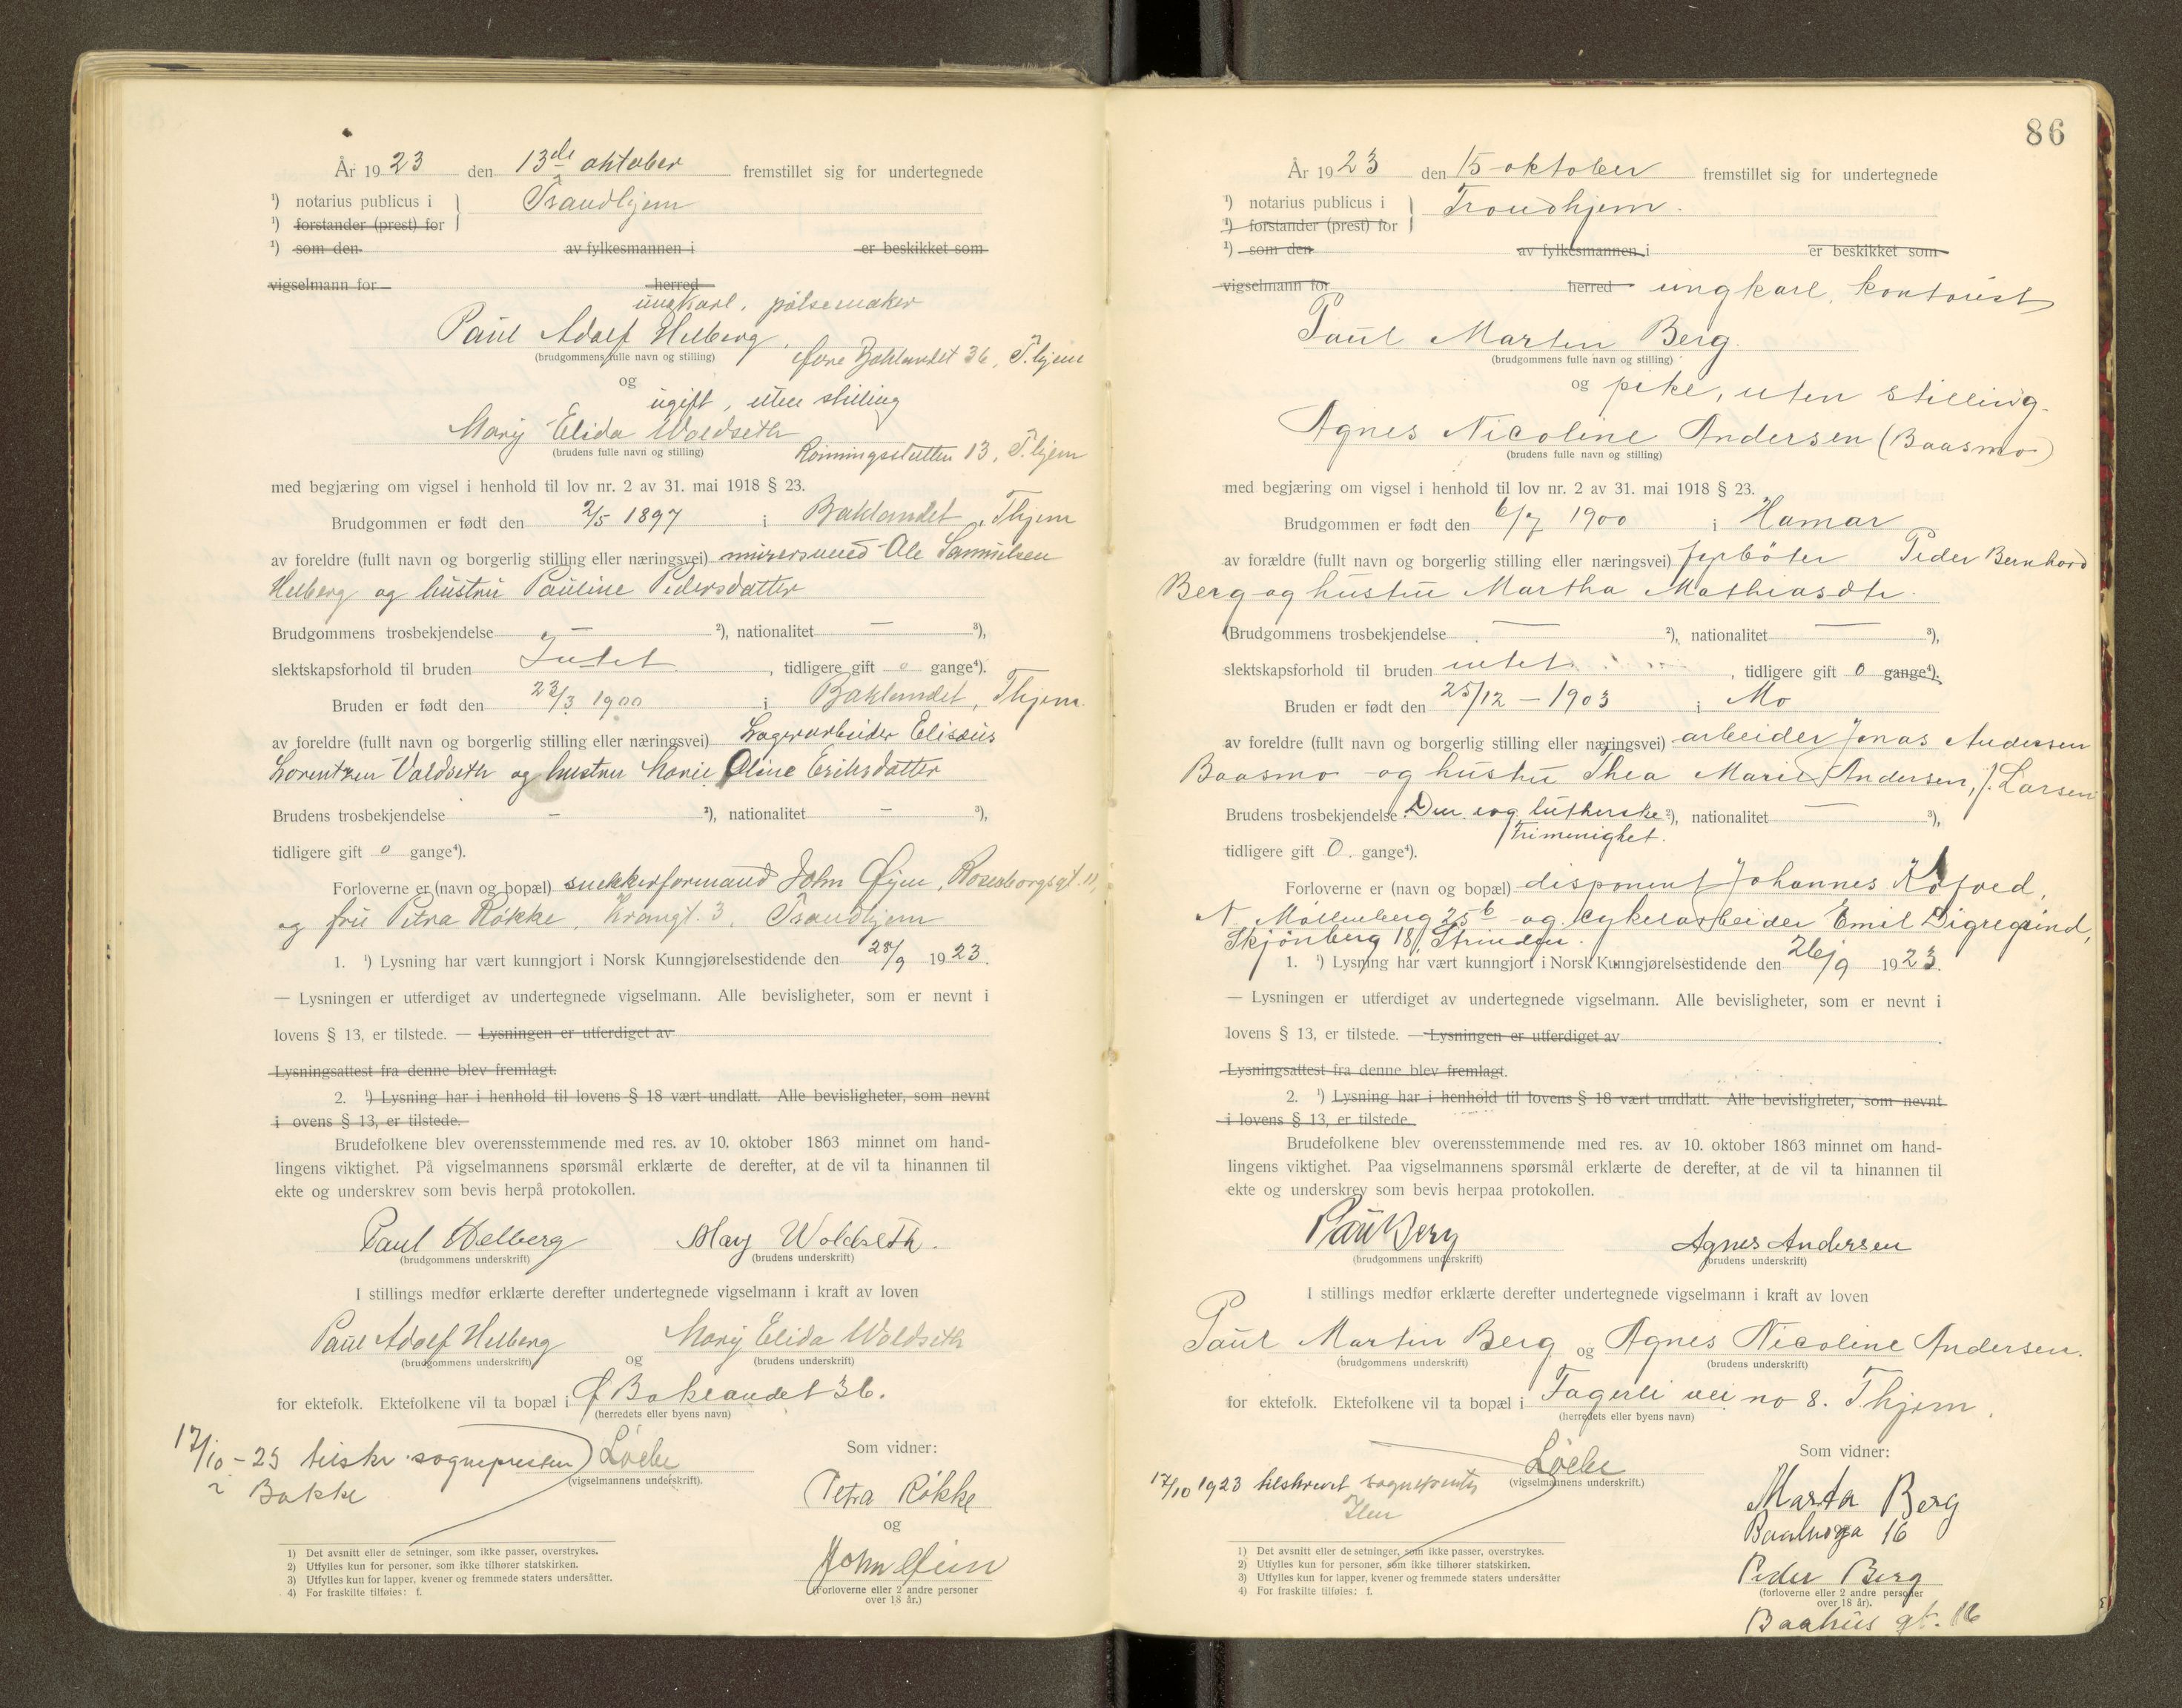 År 1923 den 13de oktober fremstillet sig for undertegnede
¹) notarius publicus i } Trondhjem
¹) forstander (prest) for
¹) som den av fylkesmannen i er beskikket som
vigselmann for herred
ungkarl, pølsemaker
Paul Adolf Helberg,
(brudgommens fulle navn og stilling)
Øvre Baklandet 36, T.hjem
og
ugift, uten stilling
Mary Elida Woldseth
(brudens fulle navn og stilling)
Rønningsletten 13, T.hjem
med begjæring om vigsel i henhold til lov nr. 2 av 31. mai 1918 § 23.
Brudgommen er født den 2/5 1897 i Baklandet, Thjem
av foreldre (fullt navn og borgerlig stilling eller næringsvei) murersvend Ole Samuelsen
Helberg og hustru Pauline Pedersdatter
Brudgommens trosbekjendelse — ²), nationalitet — ³),
slektskapsforhold til bruden Intet, tidligere gift 0 gange⁴).
Bruden er født den 23/3 1900 i Baklandet, Thjem.
av foreldre (fullt navn og borgerlig stilling eller næringsvei) Lagerarbeider Elisæus
Lorentzen Valdseth og hustru Marie Oline Eriksdatter
Brudens trosbekjendelse — ²), nationalitet — ³),
tidligere gift 0 gange⁴).
Forloverne er (navn og bopæl) snekkerformand John Øyen, Rosenborgsgt. 11,
og fru Petra Røkke, Krangt. 3, Trondhjem
1. ¹) Lysning har vært kunngjort i Norsk Kunngjørelsestidende den 28/9 1923.
— Lysningen er utferdiget av undertegnede vigselmann. Alle bevisligheter, som er nevnt i
lovens § 13, er tilstede. — Lysningen er utferdiget av
Lysningsattest fra denne blev fremlagt.
2. ¹) Lysning har i henhold til lovens § 18 vært undlatt. Alle bevisligheter, som nevnt
i ovens § 13, er tilstede.
Brudefolkene blev overensstemmende med res. av 10. oktober 1863 minnet om hand-
lingens viktighet. På vigselmannens spørsmål erklærte de derefter, at de vil ta hinannen til
ekte og underskrev som bevis herpå protokollen.
Paul Helberg May Woldseth.
(brudgommens underskrift) (brudens underskrift)
I stillings medfør erklærte derefter undertegnede vigselmann i kraft av loven
Paul Adolf Helberg og Mary Elida Woldseth
(brudgommens underskrift) (brudens underskrift)
for ektefolk. Ektefolkene vil ta bopæl i Ø Baklandet 36.
(herredets eller byens navn)
17/10 - 23 tilskr. sognepresten
i Bakke
(vigselmannens underskrift).
Som vidner:
Petra Røkke
og
John Øien
(Forloverne eller 2 andre personer
over 18 år.)
1) Det avsnitt eller de setninger, som ikke passer, overstrykes.
2) Utfylles kun for personer, som ikke tilhører statskirken.
3) Utfylles kun for lapper, kvener og fremmede staters undersåtter.
4) For fraskilte tilføies: f.
86
År 1923 den 15 oktober fremstillet sig for undertegnede
¹) notarius publicus i } Trondhjem.
¹) forstander (prest) for
¹) som den av fylkesmannen i er beskikket som
vigselmann for herred ungkarl, kontorist
Paul Martin Berg.
(brudgommens fulle navn og stilling)
og pike, uten stilling.
Agnes Nicoline Andersen (Baasmo)
(brudens fulle navn og stilling)
med begjæring om vigsel i henhold til lov nr. 2 av 31. mai 1918 § 23.
Brudgommen er født den 6/7 1900 i Hamar
av forældre (fullt navn og borgerlig stilling eller næringsvei) fyrbøter Peder Bernhard
Berg og hustru Martha Mathiasdtr.
(Brudgommens trosbekjendelse — ²), nationalitet — ³),
slektskapsforhold til bruden intet, tidligere gift 0 gange⁴).
Bruden er født den 25/12 - 1903 i Mo
av foreldre (fullt navn og borgerlig stilling eller næringsvei) arbeider Jonas Andersen
Baasmo og hustru Thea Marie Andersen, f. Larsen
Brudens trosbekjendelse Den evg. lutherske ²), nationalitet — ³),
frimenighet.
tidligere gift 0. gange⁴).
Forloverne er (navn og bopæl) disponent Johannes Kofoed,
N. Møllenberg 25b og cykelarbeider Emil Digregrind,
Skjønberg 18, Strinden.
1. ¹) Lysning har vært kunngjort i Norsk Kunngjørelsestidende den 26/9 1923.
— Lysningen er utferdiget av undertegnede vigselmann. Alle bevisligheter, som er nevnt i
lovens § 13, er tilstede. — Lysningen er utferdiget av
Lysningsattest fra denne blev fremlagt.
2. ¹) Lysning har i henhold til lovens § 18 vært undlatt. Alle bevisligheter, som nevnt
i lovens § 13, er tilstede.
Brudefolkene blev overensstemmende med res. av 10. oktober 1863 minnet om hand-
lingens viktighet. Paa vigselmannens spørsmål erklærte de derefter, at de vil ta hinannen til
ekte og underskrev som bevis herpaa protokollen.
Paul Berg Agnes Andersen
(brudgommens underskrift) (brudens underskrift)
I stillings medfør erklærte derefter undertegnede vigselmann i kraft av loven
Paul Martin Berg og Agnes Nicoline Andersen.
(brudgommens underskrift) (brudens underskrift)
for ektefolk. Ektefolkene vil ta bopæl i Fagerli vei no 8. Thjem.
(herredets eller byens navn)
17/10 1923 tilskrevet sognepresten
Ilen
(vigselmannens underskrift.)
Som vidner:
Marta Berg
16
Peder Berg
(forloverne eller 2 andre personer
over 18 år).
Baahus gt. 16
1) Det avsnitt eller de setninger, som ikke passer, overstrykes.
2) Utfylles kun for personer, som ikke tilhører statskirken.
3) Utfylles kun for lapper, kvener og fremmede staters undersåtter
4) For fraskilte tilføies: f.